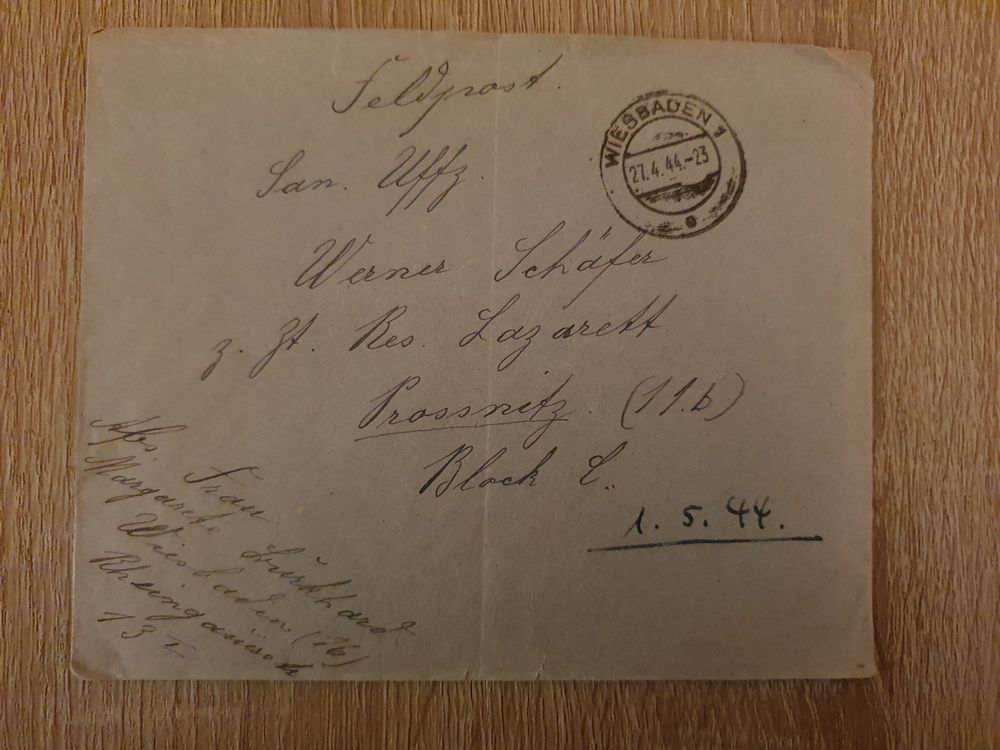 Feldpost.
WIESBADEN 1
27.4.44.-23
e
San. Uffz.
Werner Schäfer
z. Zt. Res. Lazarett
Prossnitz. (11.b)
Block C.
1. 5. 44.
Abs. Frau
Margarete
Wiesbaden (16)
13 I